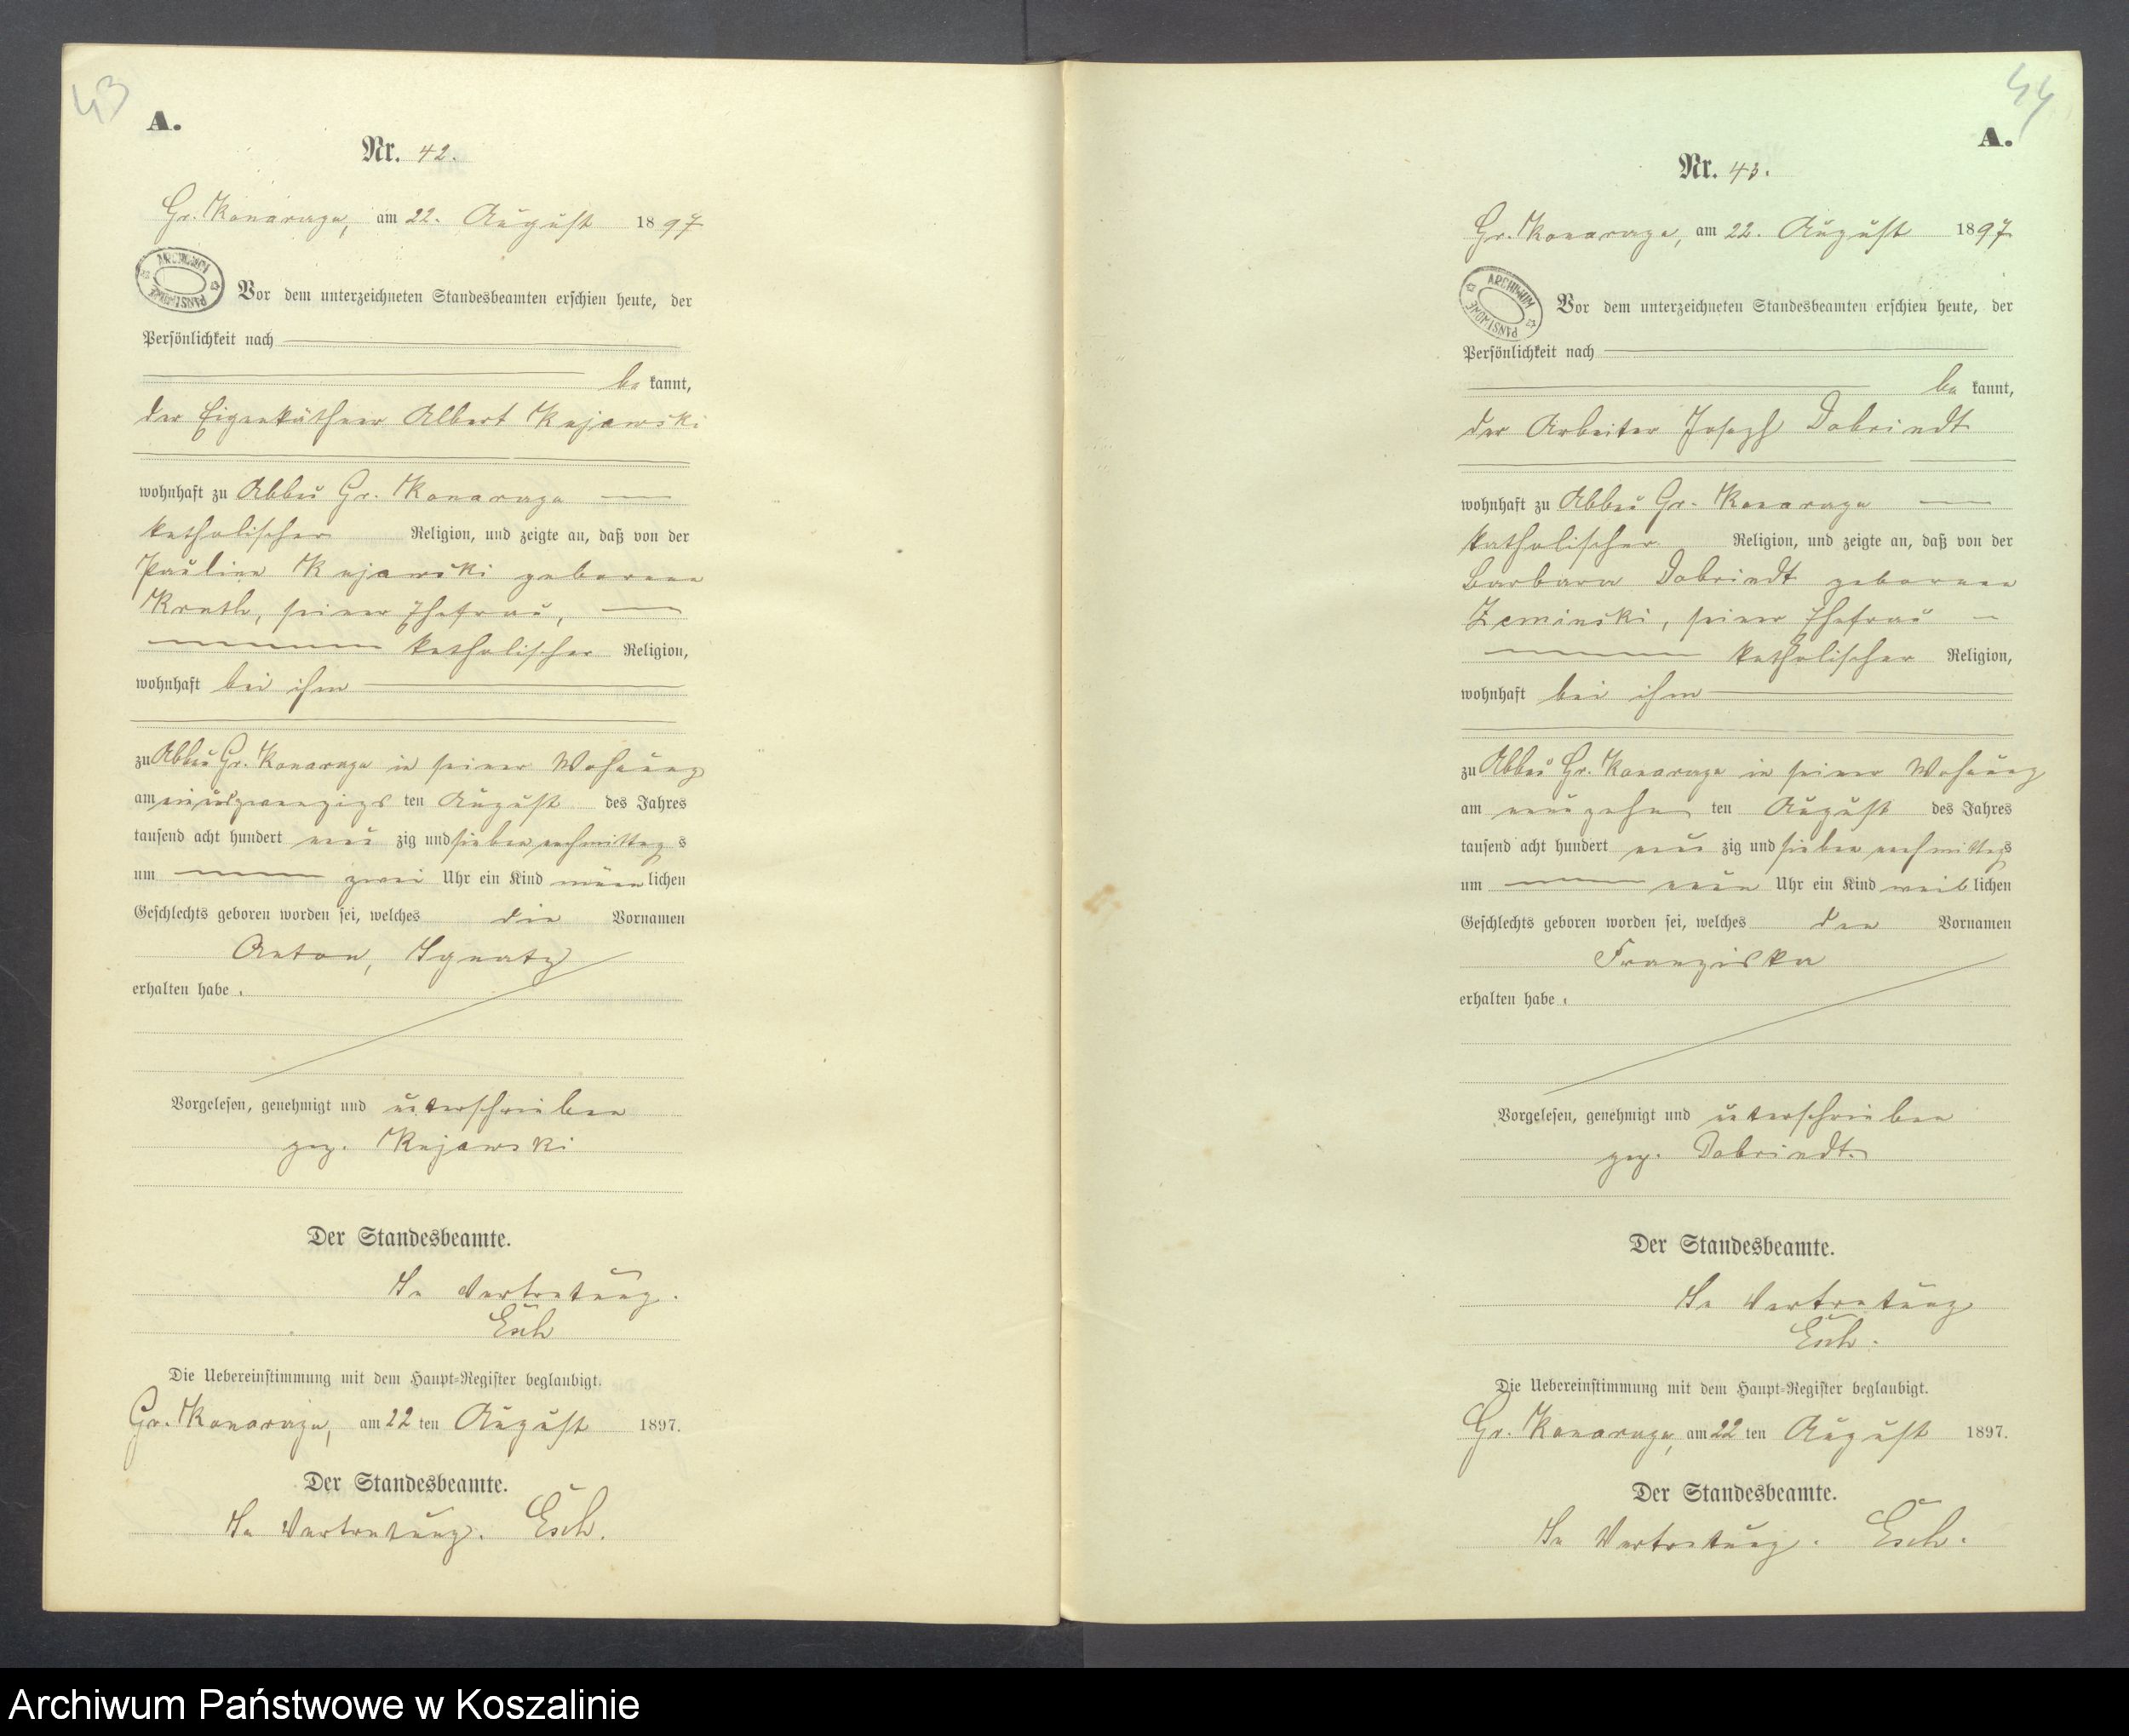 43
A.
Nr. 42.
Gr. Konarzyn, am 22. August 1897
ARCHIWUM PAŃSTWOWE
Vor dem unterzeichneten Standesbeamten erschien heute, der
Persönlichkeit nach
be kannt,
der Eigenkäthner Albert Kujawski
wohnhaft zu Abbau Gr. Konarzyn
katholischer Religion, und zeigte an, daß von der
Pauline Kujawski geborenen
seiner Ehefrau,
katholischer Religion,
wohnhaft bei ihm
zu Abbau Gr. Konarzyn in seiner Wohnung
am einundzwanzigs ten August des Jahres
tausend acht hundert neun zig und sieben nachmittag s
um zwei Uhr ein Kind männ lichen
Geschlechts geboren worden sei, welches die Vornamen
Anton, Ignatz
erhalten habe.
Vorgelesen, genehmigt und unterschrieben
gez. Kujawski
Der Standesbeamte.
In Vertretung.
Esch
Die Uebereinstimmung mit dem Haupt-Register beglaubigt.
Gr. Konarzyn, am 22 ten August 1897.
Der Standesbeamte.
In Vertretung. Esch.
44
A.
Nr. 43.
Gr. Konarzyn, am 22. August 1897
ARCHIWUM PAŃSTWOWE
Vor dem unterzeichneten Standesbeamten erschien heute, der
Persönlichkeit nach
be kannt,
der Arbeiter Joseph Dobrindt
wohnhaft zu Abbau Gr. Konarzyn
katholischer Religion, und zeigte an, daß von der
Barbara Dobrindt geborenen
Zeminski, seiner Ehefrau
katholischer Religion,
wohnhaft bei ihm
zu Abbau Gr. Konarzyn in seiner Wohnung
am neunzehn ten August des Jahres
tausend acht hundert neun zig und sieben nachmittag s
um neun Uhr ein Kind weib lichen
Geschlechts geboren worden sei, welches den Vornamen
Franziska
erhalten habe.
Vorgelesen, genehmigt und unterschrieben
gez. Dobrindt.
Der Standesbeamte.
In Vertretung
Esch.
Die Uebereinstimmung mit dem Haupt-Register beglaubigt.
Gr. Konarzyn, am 22 ten August 1897.
Der Standesbeamte.
In Vertretung. Esch.
Archiwum Państwowe w Koszalinie